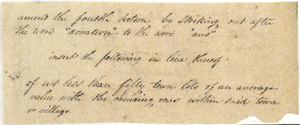 amend the fourth section by striking out after
the word "donation" to the word "and"
insert the following in lieu thereof
of not less than fifty town lots of an average
value with the remaining ones within said town
or village.